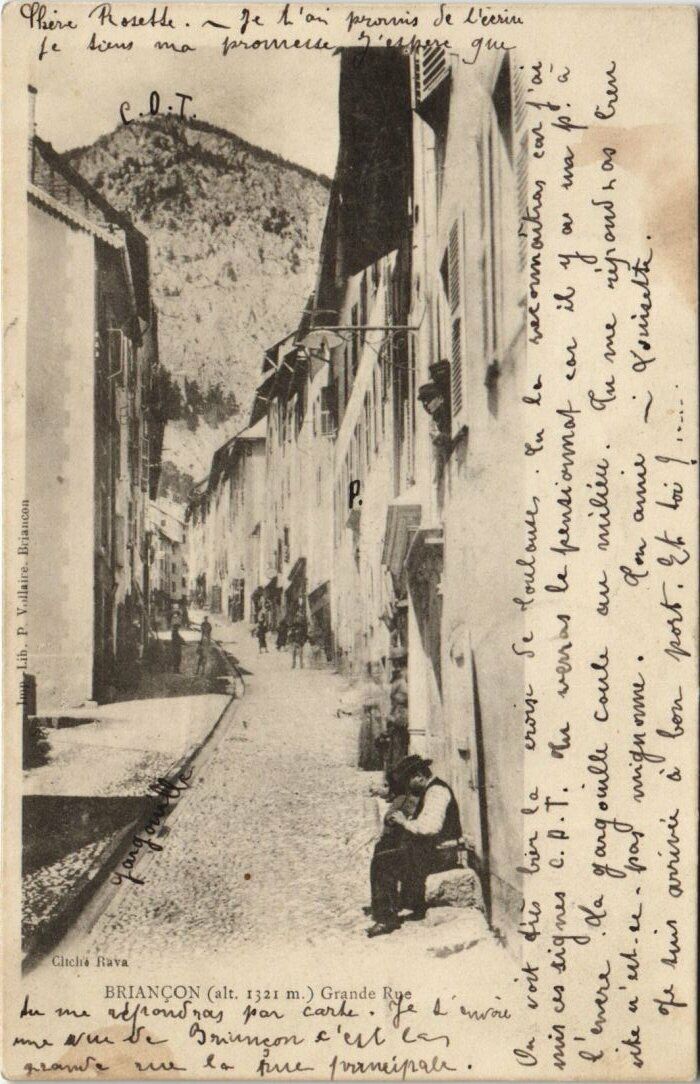 Chère Rosette. — Je t'ai promis de t'écrire
je tiens ma promesse J'espère que
tu me répondras par carte. Je t'envoie
une vue de Briançon c'est la
grande rue la rue principale.
On voit très bien la croix de Toulouse. Tu la reconnaîtras car j'ai
mis ces signes C.D.T. Tu verras le pensionnat car il y a un p. à
l'encre. La gargouille coule au milieu. Tu me répondras bien
vite n'est-ce-pas mignonne. Ton amie — Louisette.
Je suis arrivée à bon port. Et toi ?.....
C.D.T.
P.
gargouille
Imp. Lib. P. Vollaire, Briançon
Cliché Rava
BRIANÇON (alt. 1321 m.) Grande Rue